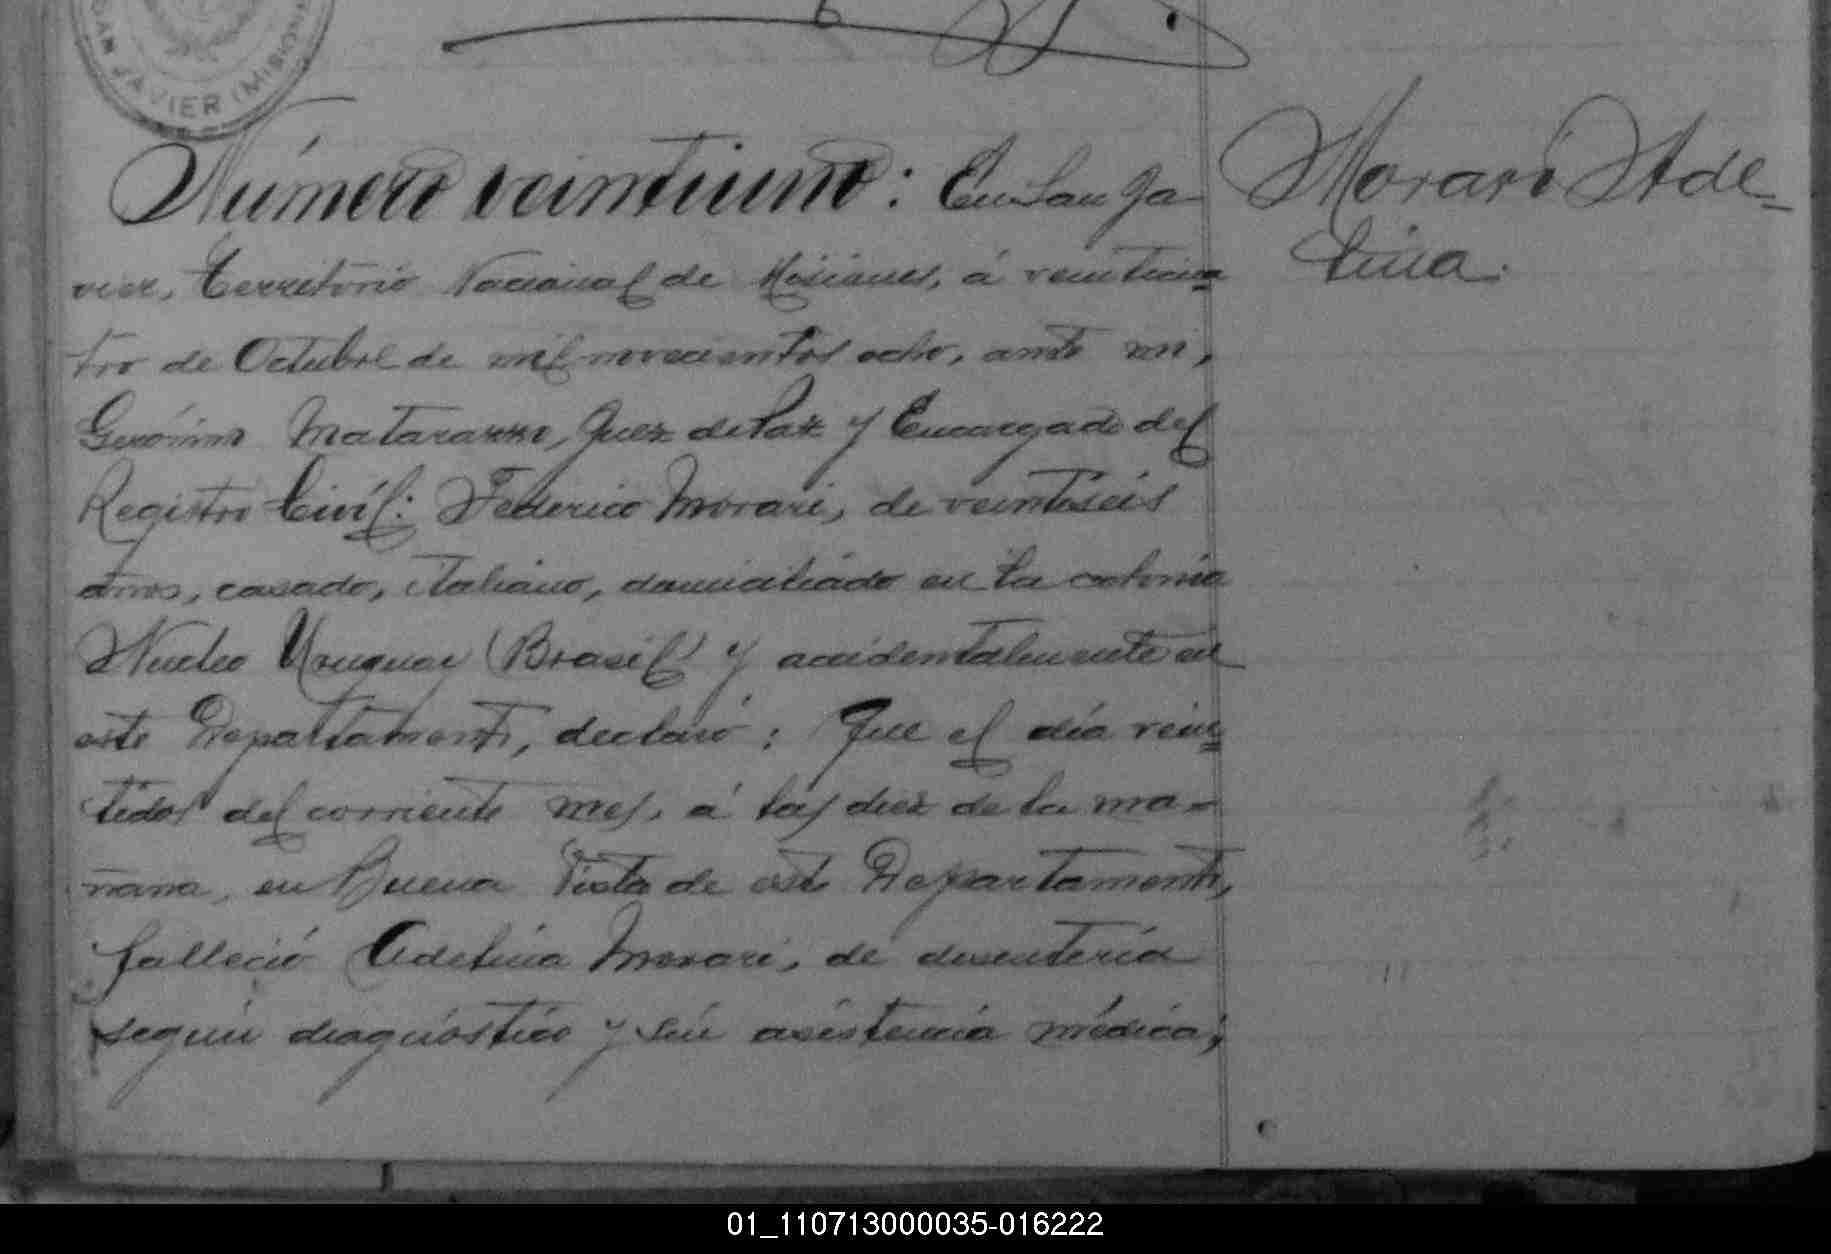 SAN JAVIER (MISIONES
Número veintiuno: En San Ja-
vier, Territorio Nacional de Misiones, á veinticua=
tro de Octubre de mil novecientos ocho, ante mi,
Gerónimo Matarazzo, Juez de Paz y Encargado del
Registro Civil: Federico Morari, de veintiseis
años, casado, italiano, domiciliado en la colonia
Nucleo Uruguay (Brasil) y accidentalmente en
este Departamento, declaró: Que el día vein=
tidos del corriente mes, á las diez de la ma=
ñana, en Buena Vista de este Departamento,
falleció Adelina Morari, de disentería
según diagnóstico y sin asistencia médica;
Morari Ade=
lina.
01_110713000035-016222